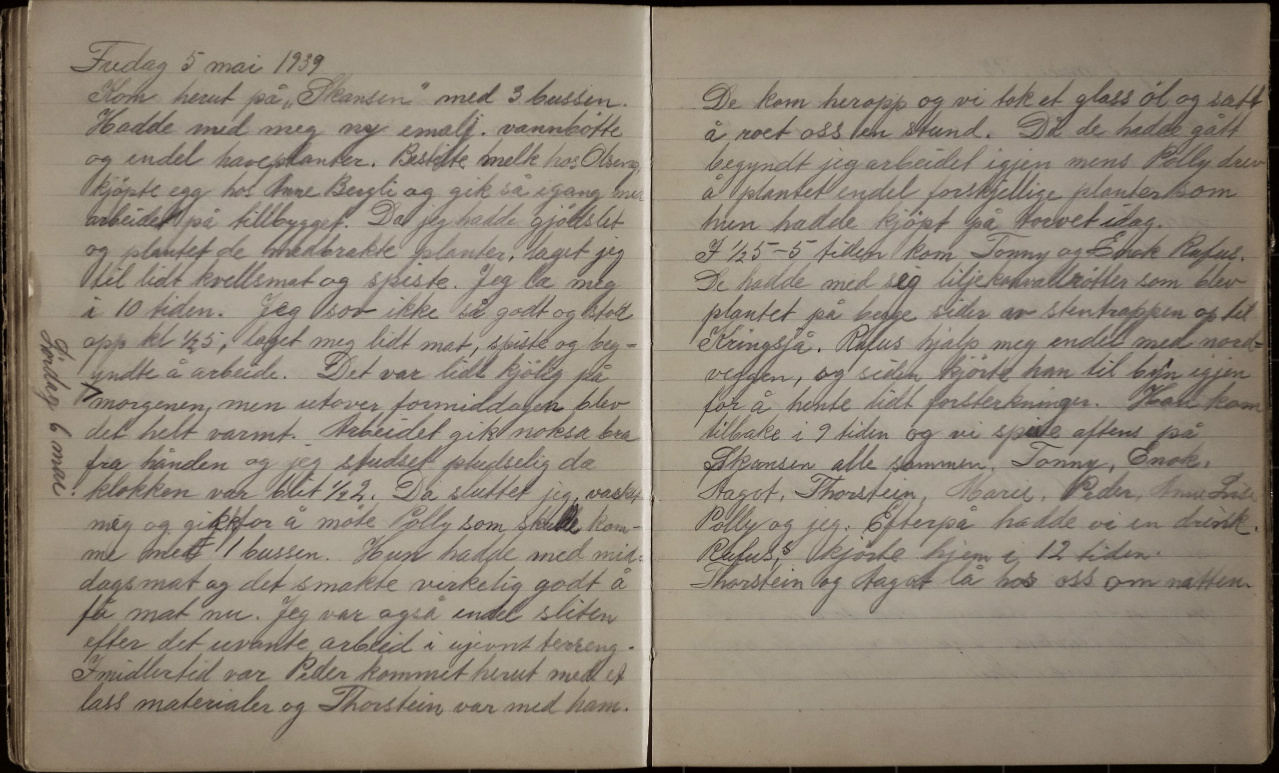 Fredag 5 mai 1939
Kom herut på „Skansen" med 3 bussen.
Hadde med meg ny emalj. vannbøtte
og endel haveplanter. Bestilte melk hos Olseng,
kjøpte egg hos Anne Bergli og gik så igang med
arbeidet på tilbygget. Da jeg hadde gjødslet
og plantet de medbrakte planter, laget jeg
til lidt kvellsmat og spiste. Jeg la meg
i 10 tiden. Jeg sov ikke så godt og stod
opp kl ½5, laget meg lidt mat, spiste og beg-
yndte å arbeide. Det var lidt kjølig på
morgenen, men utover formiddagen blev
det helt varmt. Arbeidet gik noksa bra
fra hånden og jeg studset pludselig da
klokken var blit ½2. Da sluttet jeg, vasket
mig og gik for å møte Polly som skulle kom-
me med 1 bussen. Hun hadde med mid-
dagsmat og det smakte virkelig godt å
få mat nu. Jeg var også endel sliten
efter det uvante arbeid i ujevnt terreng.
Imidlertid var Peder kommet herut med et
lass materialer og Thorstein var med ham.
Lørdag 6 mai
De kom heropp og vi tok et glass øl og satt
å roet oss en stund. Då de hadde gått
begyndt jeg arbeidet igjen mens Polly drev
å plantet endel forskjellige planter som
hun hadde kjøpt på torvet idag.
I ½5-5 tiden kom Tonny og Enok Rafus.
De hadde med sig liljekonvallrøtter som blev
plantet på begge sider av stentrappen op til
Kringsjå. Rafus hjalp meg endel med nord-
veggen, og siden kjørte han til byn igjen
for å hente lidt forsterkninger. Han kom
tilbake i 9 tiden og vi spiste aftens på
Skansen alle sammen, Tonny, Enok,
Aagot, Thorstein, Marie, Peder, Anne Lise
Polly og jeg. Efterpå hadde vi en drink.
Rafus's kjørte hjem i 12 tiden.
Thorstein og Aagot lå hos oss om natten.